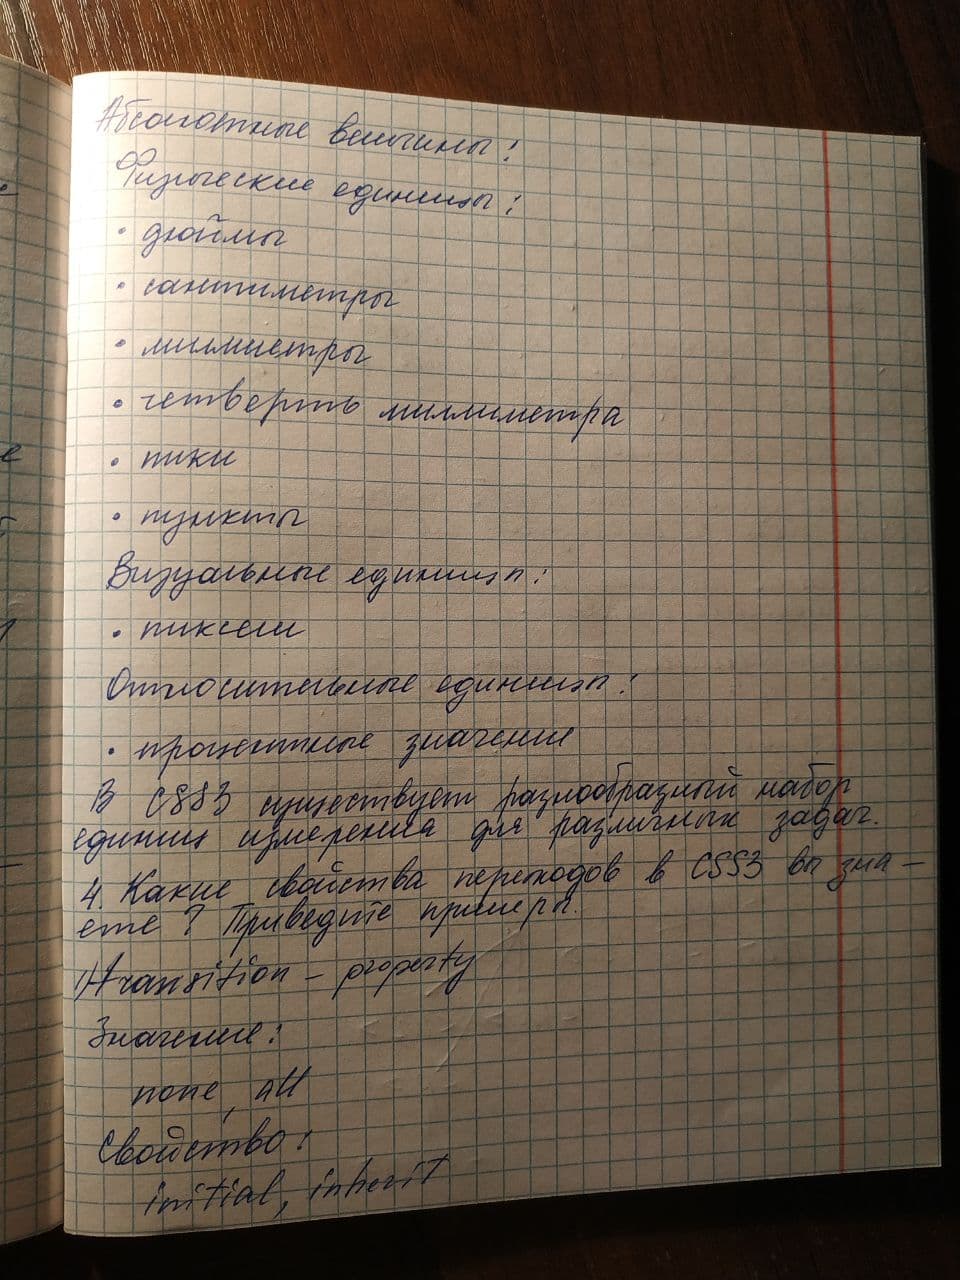 Абсолютные величины:
Физические единицы:
• дюймы
• сантиметры
• миллиметры
• четверть миллиметра
• пики
• пункты
Визуальные единицы:
• пиксели
Относительные единицы:
• процентные значение
В CSS3 существует разнообразный набор
единиц измерения для различных задач.
4. Какие свойства переходов в CSS3 вы зна-
ете? Приведите примеры.
1) transition - property
Значение:
none, all
Свойство:
initial, inherit